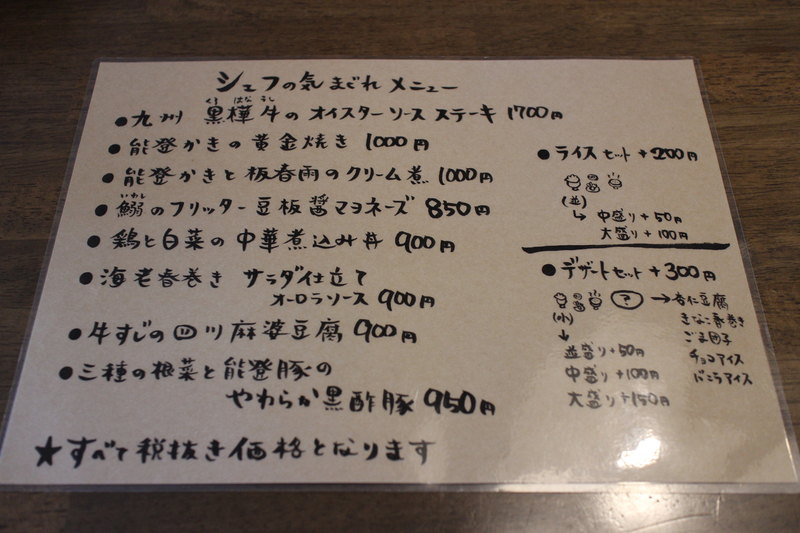 シェフの気まぐれメニュー
●九州 黒樺牛のオイスターソースステーキ 1700円
くろ はなうし
●能登かきの黄金焼き 1000円
●能登かきと板春雨のクリーム煮 1000円
●鰯のフリッター豆板醤マヨネーズ 850円
いわし
●鶏と白菜の中華煮込み丼 900円
●海老春巻き サラダ仕立て
オーロラソース 900円
●牛すじの四川麻婆豆腐 900円
●三種の根菜と能登豚の
やわらか黒酢豚 950円
★すべて税抜き価格となります
●ライスセット+200円
(並)
↳ 中盛り+50円
大盛り+100円
●デザートセット+300円
? →杏仁豆腐
(小) きなこ春巻き
↓ ごま団子
並盛り+50円 チョコアイス
中盛り+100円 バニラアイス
大盛り+150円